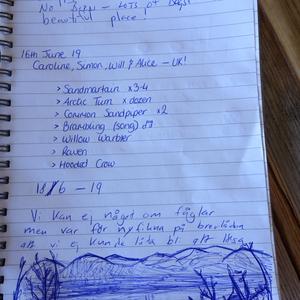 No - Lots of bogs!
beautiful place!
16th June 19
Caroline, Simon, Will & Alice - UK!
> Sandmartain x3-4
> Arctic Turn x dozen
> Common Sandpiper x2
> Brambling (song)
> Willow Warbler
> Raven
> Hooded Crow
18/6 - 19
Vi kan ej något om fåglar
men var för nyfikna på brevlådan
att vi ej kunde låta bli att läsa